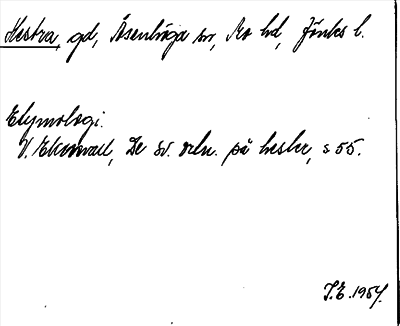 Hestra, gd, Åsenhöga sn, Mo hd, Jönks l.
Etymologi.
V. Ekenvall, De sv. ortn. på hester, s 55.
J.E. 1954.